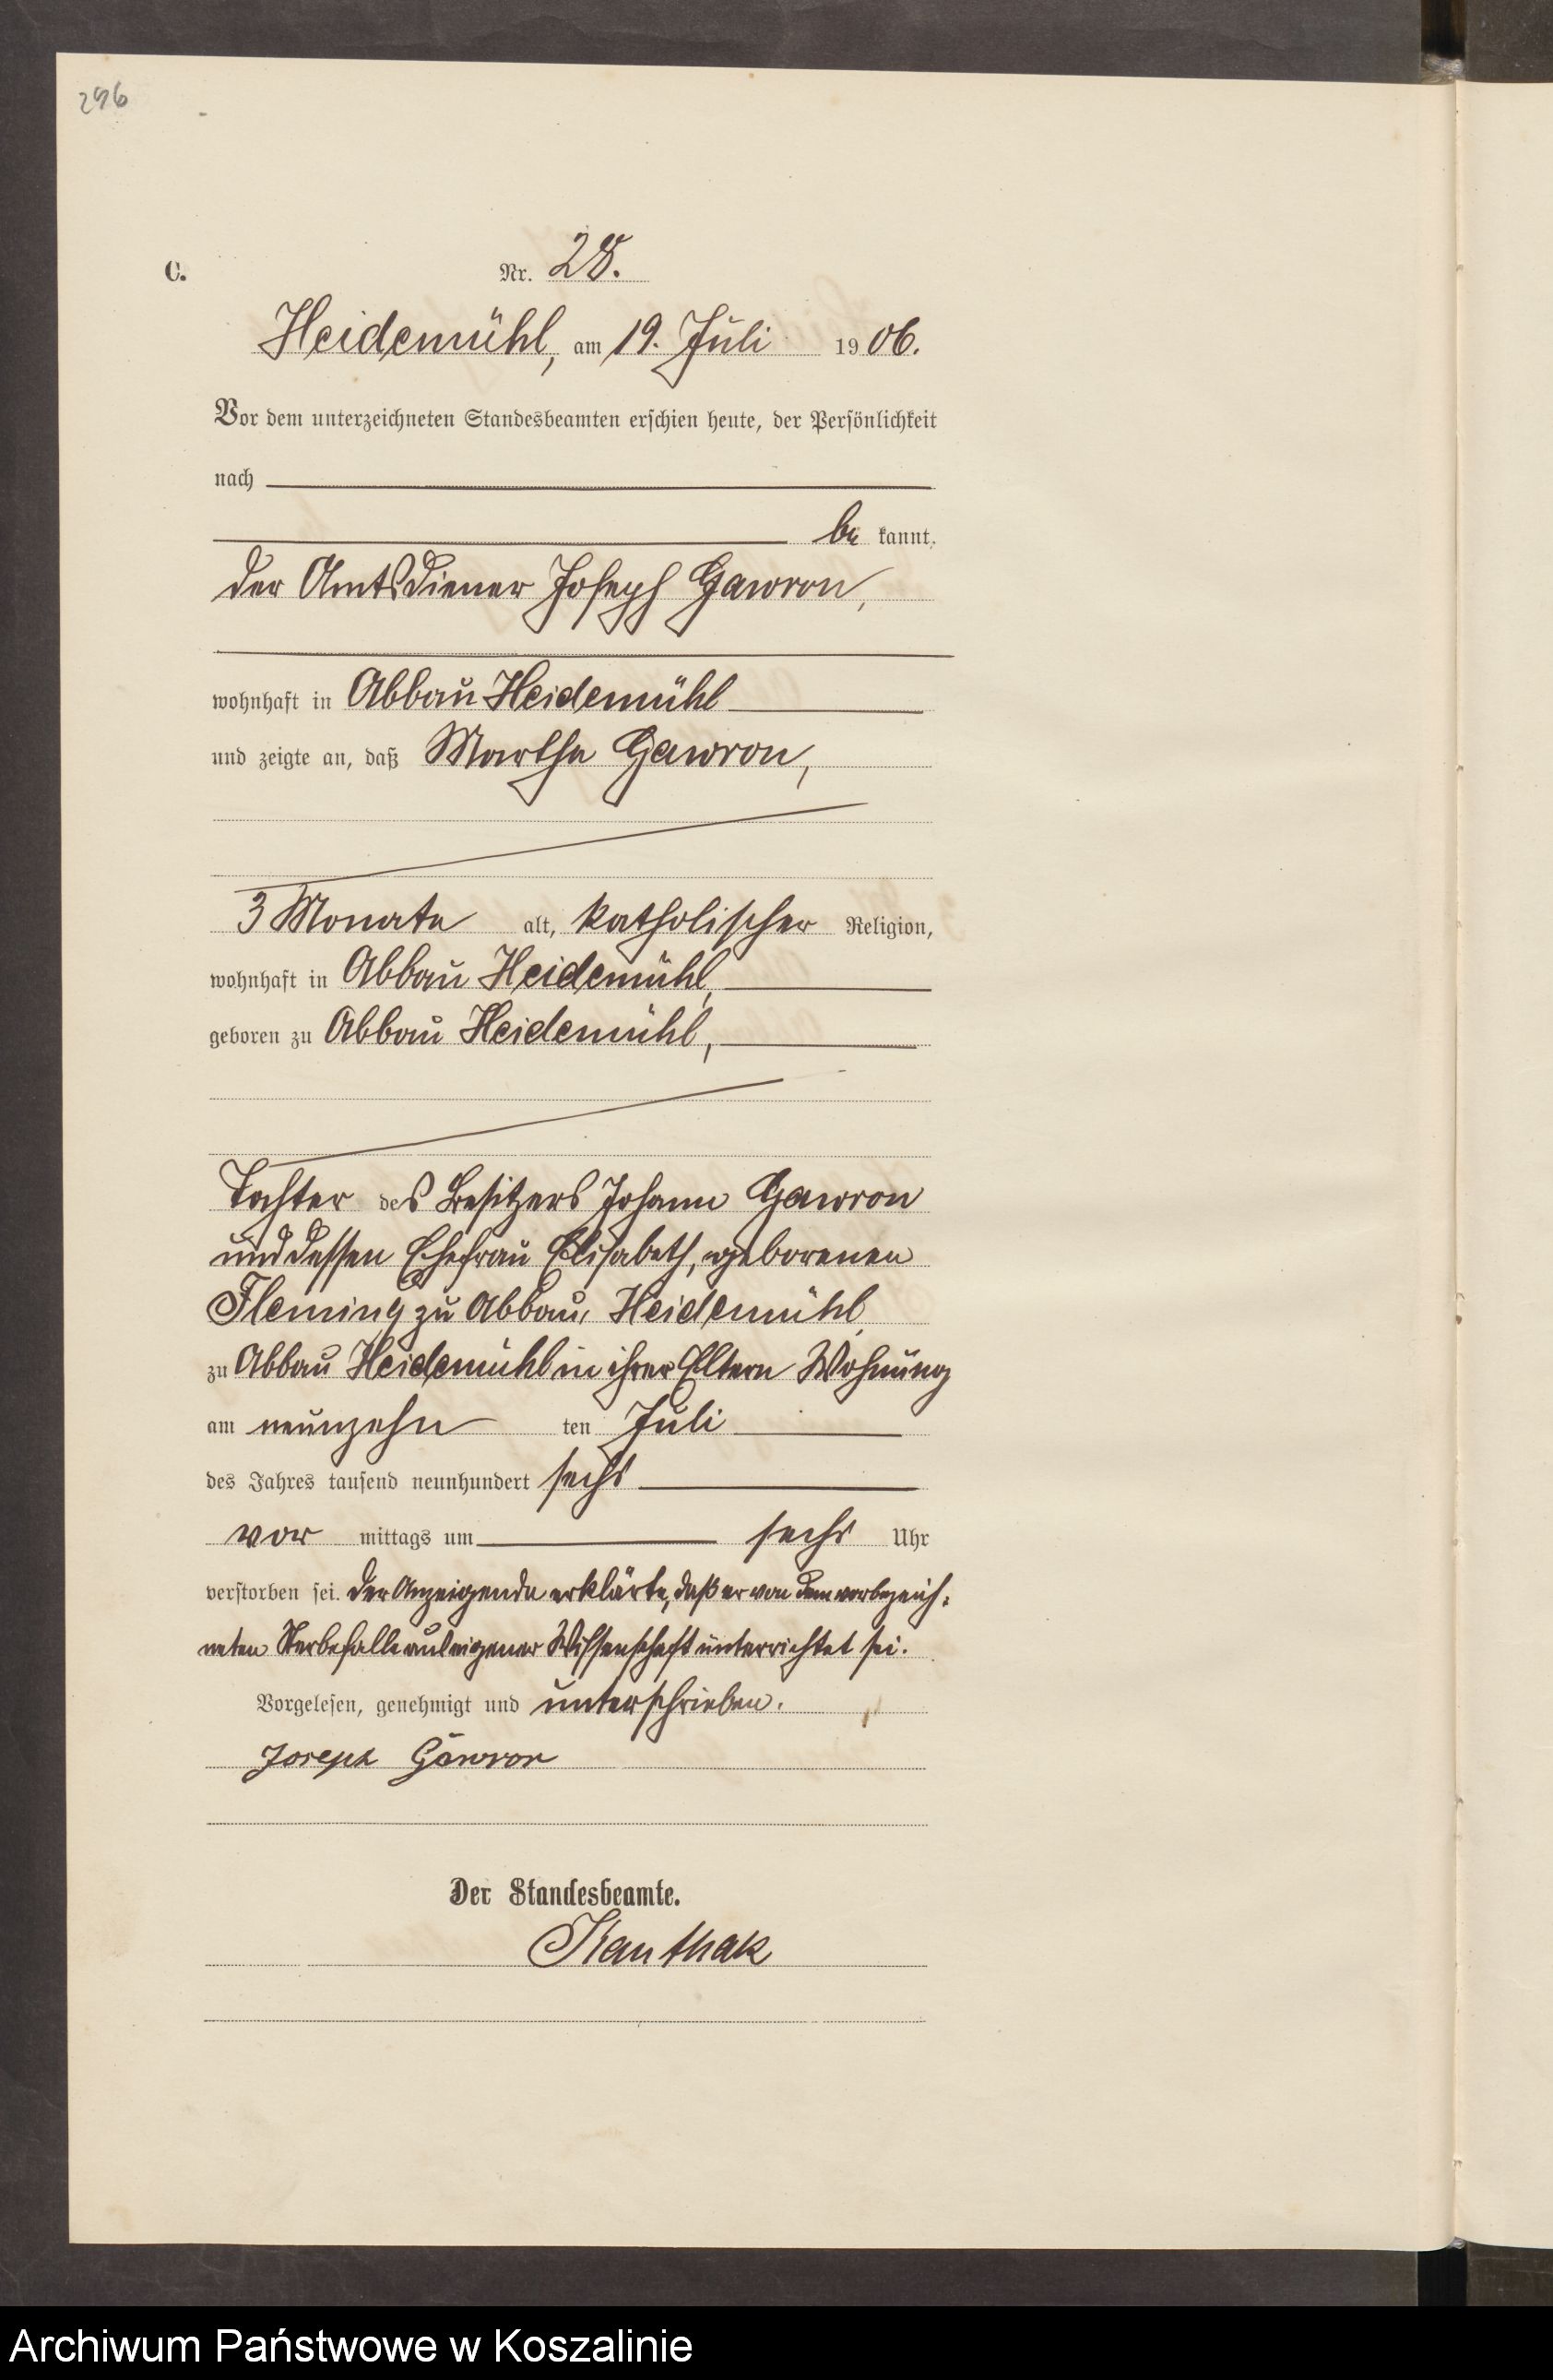 296
C.
Nr. 28.
Heidemühl, am 19. Juli 1906.
Vor dem unterzeichneten Standesbeamten erschien heute, der Persönlichkeit
nach
be kannt,
der Amtsdiener Joseph Gawron,
wohnhaft in Abbau Heidemühl
und zeigte an, daß Martha Gawron,
3 Monate alt, katholischer Religion,
wohnhaft in Abbau Heidemühl,
geboren zu Abbau Heidemühl,
Tochter des Besitzers Johann Gawron
und dessen Ehefrau Elisabeth, geborenen
Fleming zu Abbau Heidemühl,
zu Abbau Heidemühl in ihrer Eltern Wohnung
am neunzehn ten Juli
des Jahres tausend neunhundert sechs
vor mittags um sechs Uhr
verstorben sei. Der Anzeigende erklärte, daß er von dem vorbezeich-
neten Sterbefalle aus eigener Wissenschaft unterrichtet sei.
Vorgelesen, genehmigt und unterschrieben.
Joseph Gawron
Der Standesbeamte.
Kauthak
Archiwum Państwowe w Koszalinie